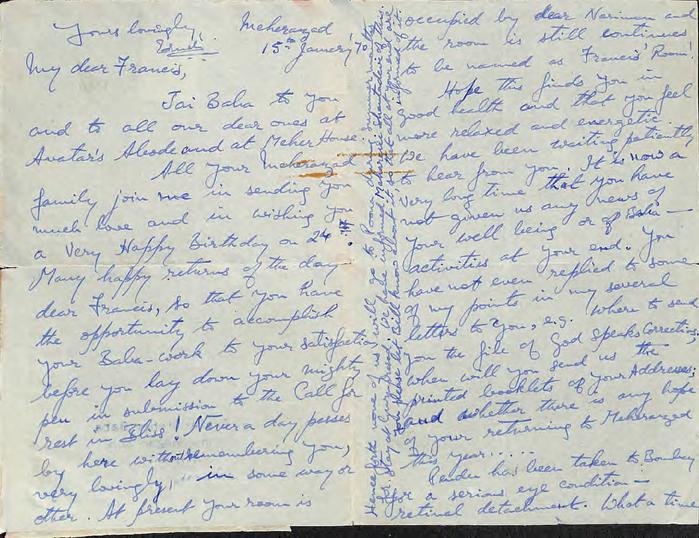 Yours lovingly,
Meherazad
15th January '70
My dear Francis,
Jai Baba to you
and to all our dear ones at
Avatar's Abode and at Meher House
All your Meherazad
family join me in sending you
much love and in wishing you
a Very Happy Birthday on 24th.
Many happy returns of the day
dear Francis, so that you have
the opportunity to accomplish
your Baba-work to your satisfaction
before you lay down your mighty
pen in submission to the Call for
rest in Bliss! Never a day passes
by here without remembering you,
very lovingly, in some way or
other. At present your room is
occupied by dear Nariman and
the room is still continues
to be named as Francis' Room.
Hope this finds you in
good health and that you feel
more relaxed and energetic.
We have been waiting patiently
to hear from you. It is now a
very long time that you have
not given us any news of
your well being or of Baba-
activities at your end. You
have not even replied to some
of my points in my several
letters to you, e.g. where to send
you the file of God Speaks Corrections,
when will you send us the
printed booklets of your Addresses;
and whether there is any hope
of your returning to Meherazad
this year.....
Pendu has been taken to Bombay
for a serious eye condition —
retinal detachment. What a time
Henceforth none of us will go to Poona